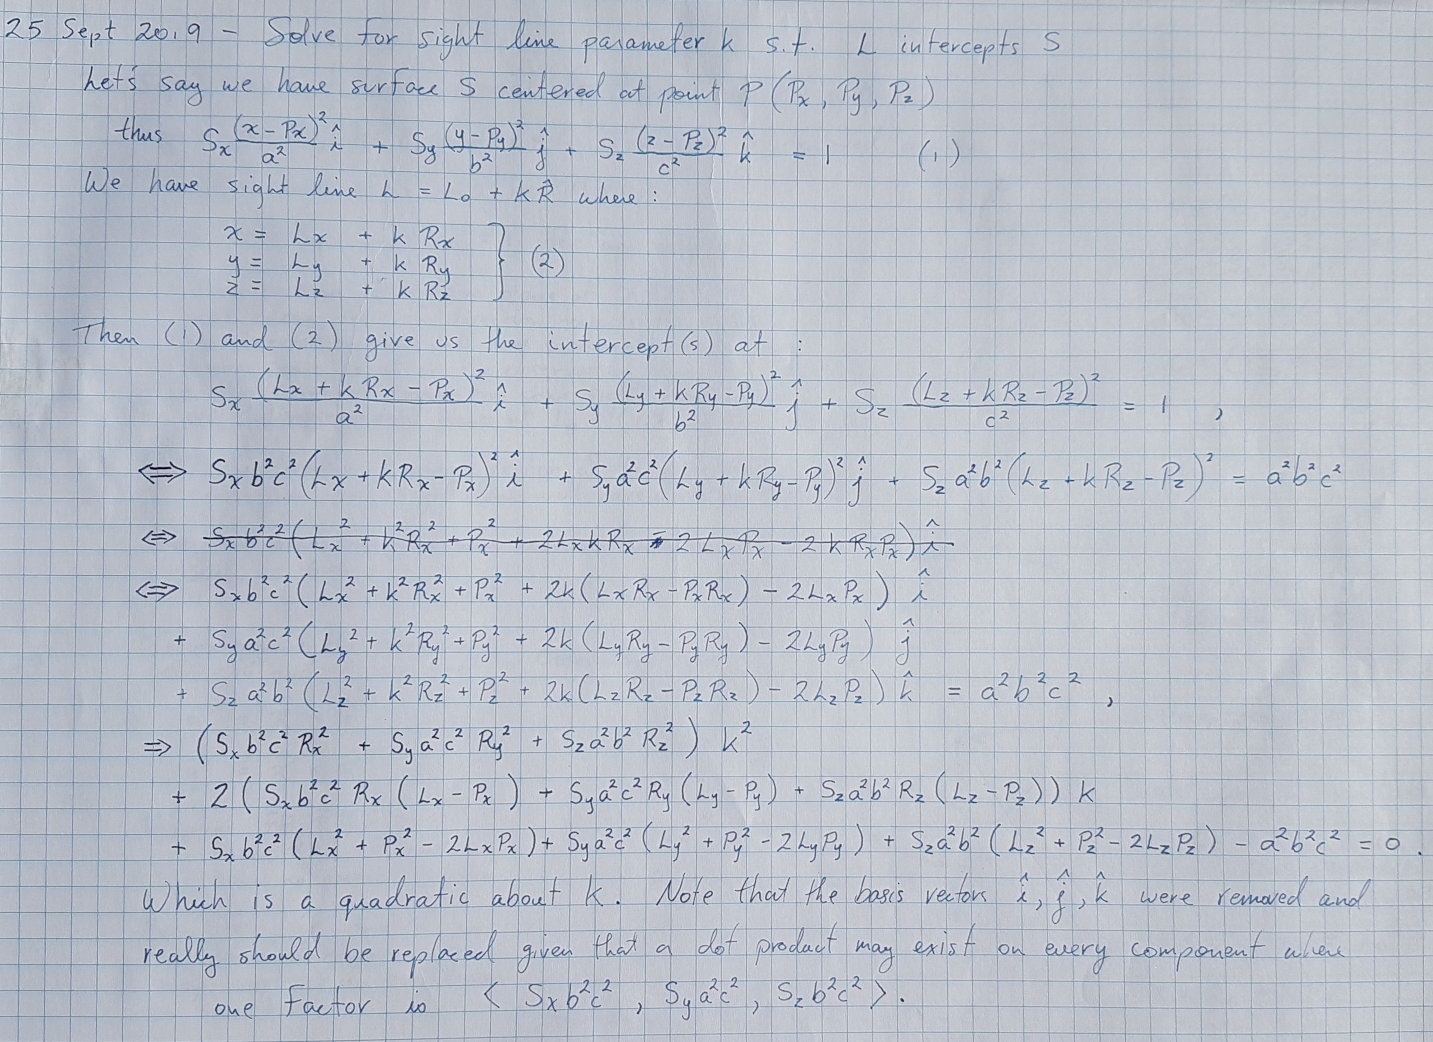 25 Sept 2019 – Solve for sight line parameter k s.t. L intercepts S
Let's say we have surface S centered at point P (Px, Py, Pz)
thus Sx (x – Px)²/a² î + Sy (y – Py)²/b² ĵ + Sz (z – Pz)²/c² k̂ = 1 (1)
We have sight line L = L₀ + k R⃗ where :
x = Lx + k Rx
y = Ly + k Ry } (2)
z = Lz + k Rz
Then (1) and (2) give us the intercept(s) at :
Sx (Lx + k Rx – Px)²/a² î + Sy (Ly + k Ry – Py)²/b² ĵ + Sz (Lz + k Rz – Pz)²/c² = 1 ,
⇔ Sx b²c² (Lx + kRx – Px)² î + Sy a²c² (Ly + kRy – Py)² ĵ + Sz a²b² (Lz + kRz – Pz)² = a²b²c²
⇔ Sx b²c² (Lx² + k²Rx² + Px² + 2LxkRx – 2LxPx – 2kRxPx) î
⇔ Sx b²c² (Lx² + k²Rx² + Px² + 2k(LxRx – PxRx) – 2LxPx) î
+ Sy a²c² (Ly² + k²Ry² + Py² + 2k(LyRy – PyRy) – 2LyPy) ĵ
+ Sz a²b² (Lz² + k²Rz² + Pz² + 2k(LzRz – PzRz) – 2LzPz) k̂ = a²b²c² ,
⇒ (Sx b²c² Rx² + Sy a²c² Ry² + Sz a²b² Rz²) k²
+ 2 (Sx b²c² Rx (Lx – Px) + Sy a²c² Ry (Ly – Py) + Sz a²b² Rz (Lz – Pz)) k
+ Sx b²c² (Lx² + Px² – 2LxPx) + Sy a²c² (Ly² + Py² – 2LyPy) + Sz a²b² (Lz² + Pz² – 2LzPz) – a²b²c² = 0 .
Which is a quadratic about k. Note that the basis vectors î, ĵ, k̂ were removed and
really should be replaced given that a dot product may exist on every component where
one factor is < Sx b²c² , Sy a²c² , Sz b²c² > .